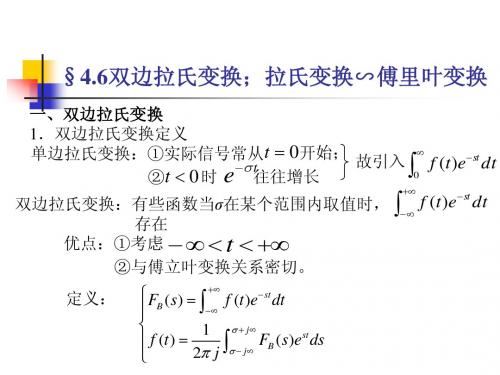 §4.6双边拉氏变换；拉氏变换∽傅里叶变换
一、双边拉氏变换
1．双边拉氏变换定义
单边拉氏变换：①实际信号常从t = 0开始；
②t < 0时 e^{-σt}往往增长
故引入 ∫_0^∞ f(t)e^{-st}dt
双边拉氏变换：有些函数当σ在某个范围内取值时， ∫_{-∞}^{+∞} f(t)e^{-st}dt
存在
优点：①考虑 -∞ < t < +∞
②与傅立叶变换关系密切。
定义： F_B(s) = ∫_{-∞}^{+∞} f(t)e^{-st}dt
f(t) = 1/(2πj) ∫_{σ-j∞}^{σ+j∞} F_B(s)e^{st}ds